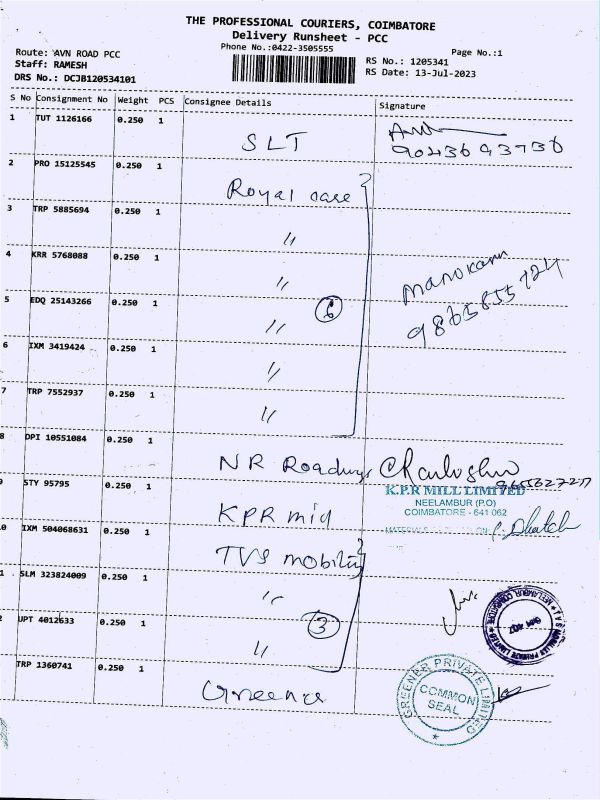 THE PROFESSIONAL COURIERS, COIMBATORE
Delivery Runsheet - PCC
Phone No.:0422-3505555
Page No.:1
Route: AVN ROAD PCC
Staff: RAMESH
DRS No.: DCJB120534101
RS No.: 1205341
RS Date: 13-Jul-2023
S No Consignment No Weight PCS Consignee Details Signature
1 TUT 1126166 0.250 1 SLT
9043693736
2 PRO 15125545 0.250 1 Royal care
3 TRP 5885694 0.250 1 〃
4 KRR 5768088 0.250 1 〃
5 EDQ 25143266 0.250 1 〃 6
6 IXM 3419424 0.250 1 〃
7 TRP 7552937 0.250 1 〃
8 DPI 10551084 0.250 1 NR Roadways
9 STY 95795 0.250 1 KPR mill
K.P.R MILL LIMITED
NEELAMBUR (P.O)
COIMBATORE - 641 062
0 IXM 504068631 0.250 1 TVS mobility
1 SLM 323824009 0.250 1 〃
2 UPT 4012633 0.250 1 〃 3
TRP 1360741 0.250 1 Greener
GREENER PRIVATE LIMITED
COMMON
SEAL